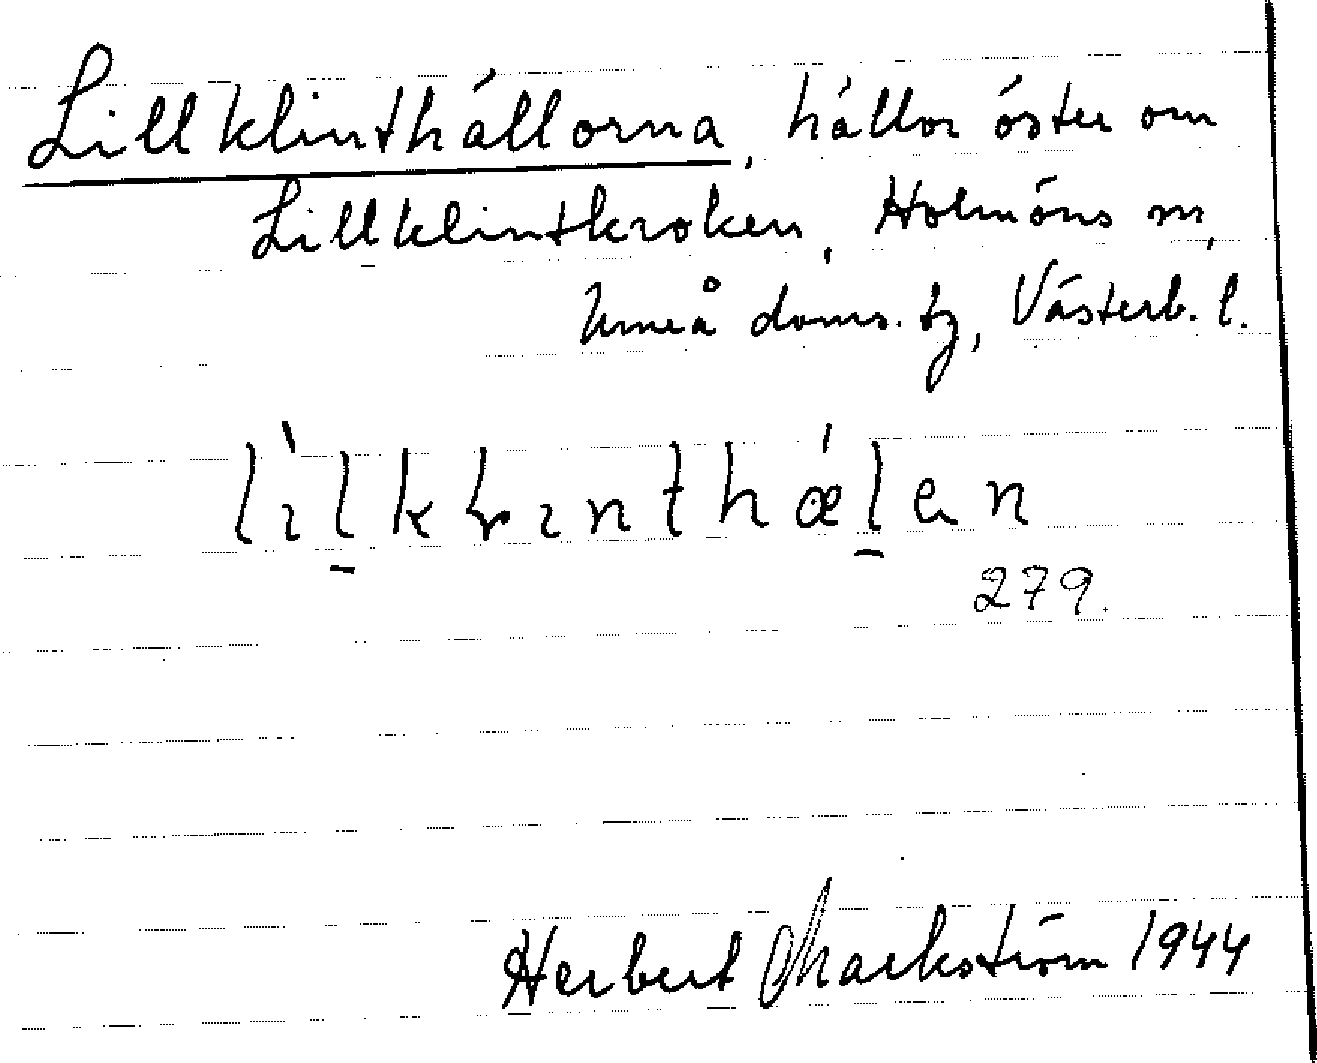 Lillklinthällorna, hällor öster om
Lillklintkroken, Holmöns sn,
Umeå doms. tg, Västerb. l.
lìl̠klɩnthǽl̠en
279.
Herbert Markström 1944